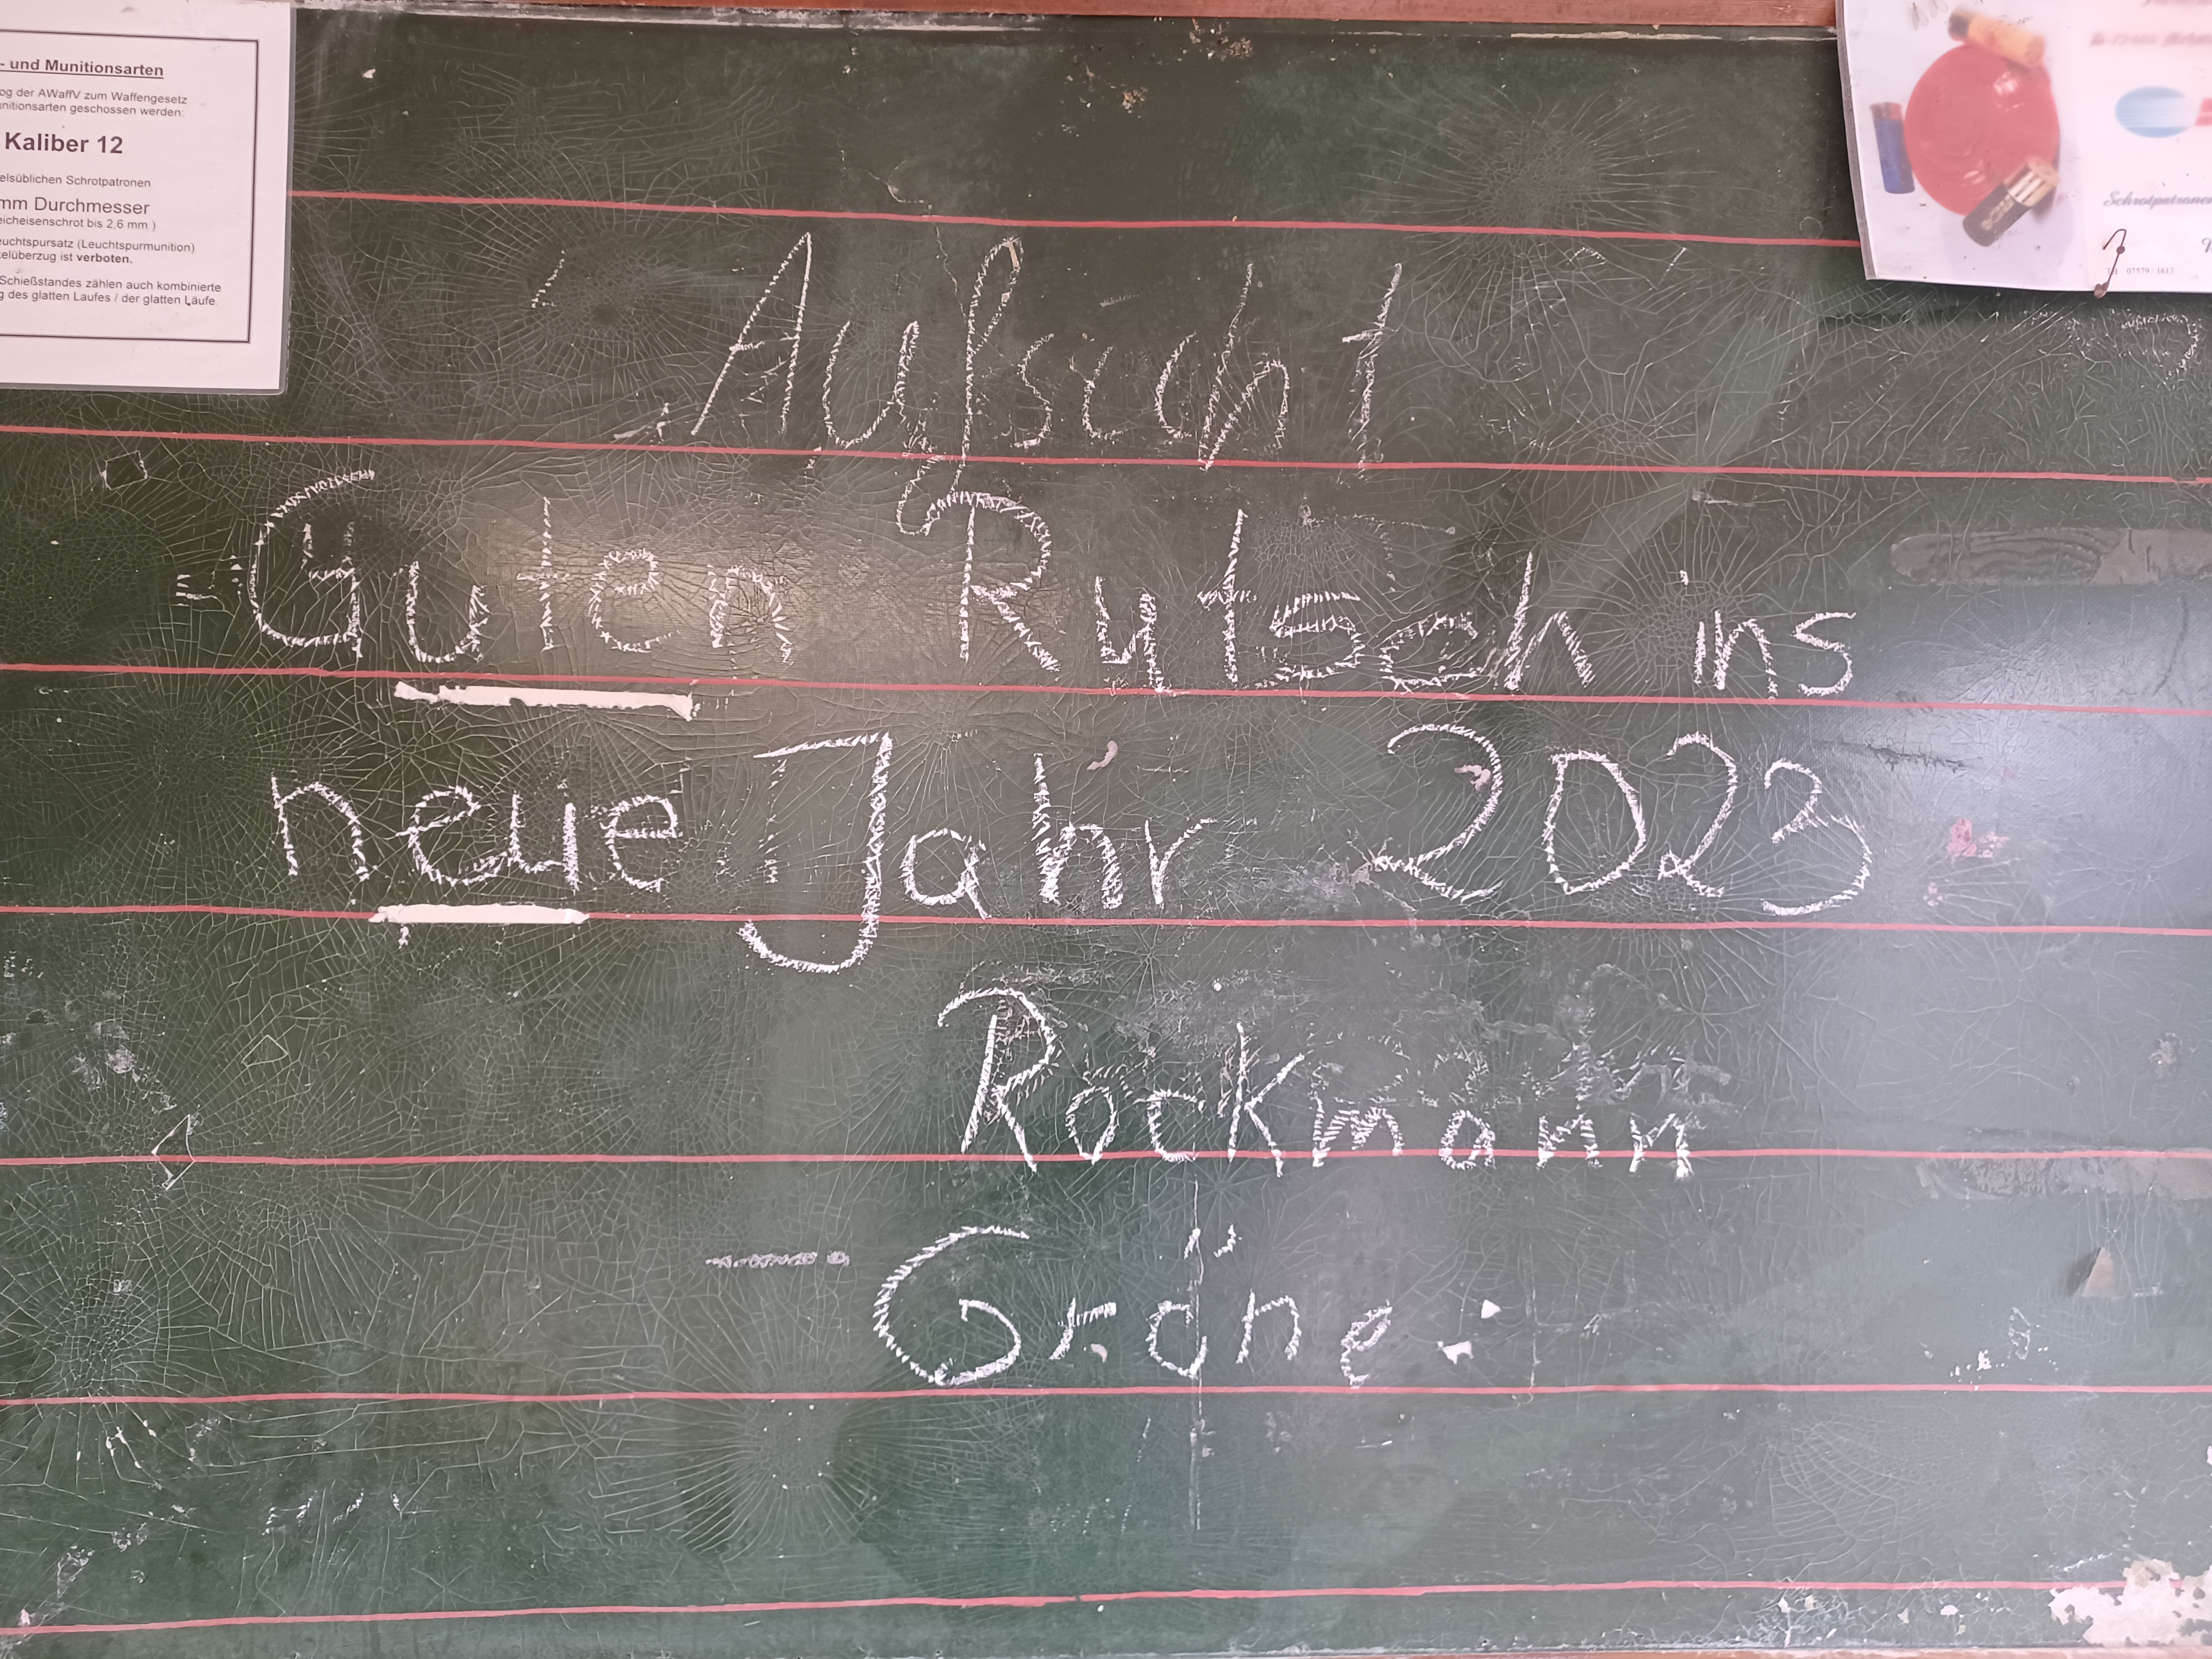 - und Munitionsarten
og der AWaffV zum Waffengesetz
unitionsarten geschossen werden:
Kaliber 12
elsüblichen Schrotpatronen
mm Durchmesser
eicheisenschrot bis 2,6 mm )
euchtspursatz (Leuchtspurmunition)
kelüberzug ist verboten.
Schießstandes zählen auch kombinierte
g des glatten Laufes / der glatten Läufe.
Schrotpatronen
07579 / 1613
Aufsicht
Guten Rutsch ins
neue Jahr 2023
Rockmann
Gröne